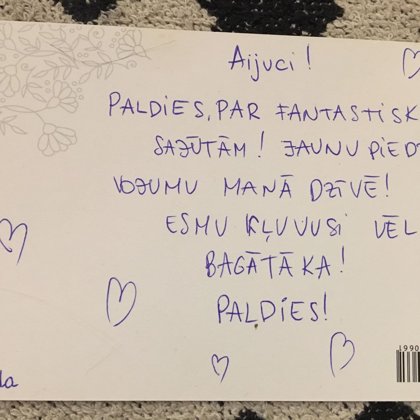 Aijuci!
PALDIES, PAR FANTASTISK
SAJŪTĀM! JAUNU PIEDZ
VOJUMU MANĀ DZĪVĒ!
ESMU KĻUVUSI VĒL
BAGĀTĀKA!
PALDIES!
da
1990